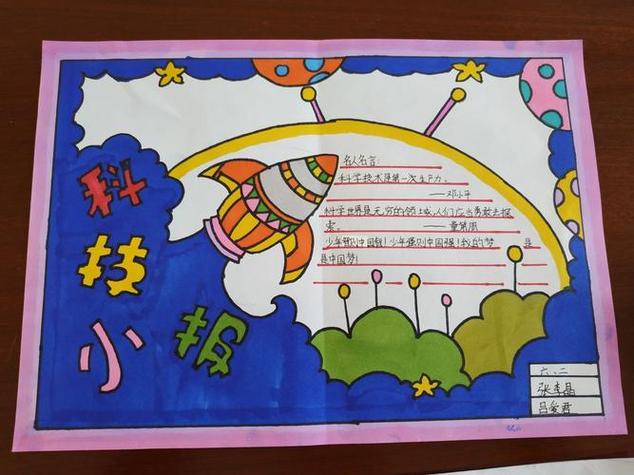 科
技
小报
名人名言:
科学技术是第一次生产力。
——邓小平
科学世界是无穷的领域,人们应当勇敢去探
索。 ——童第周
少年智则中国智!少年强则中国强!我的梦 是
是中国梦!
六、二
张李晶
吕爱君